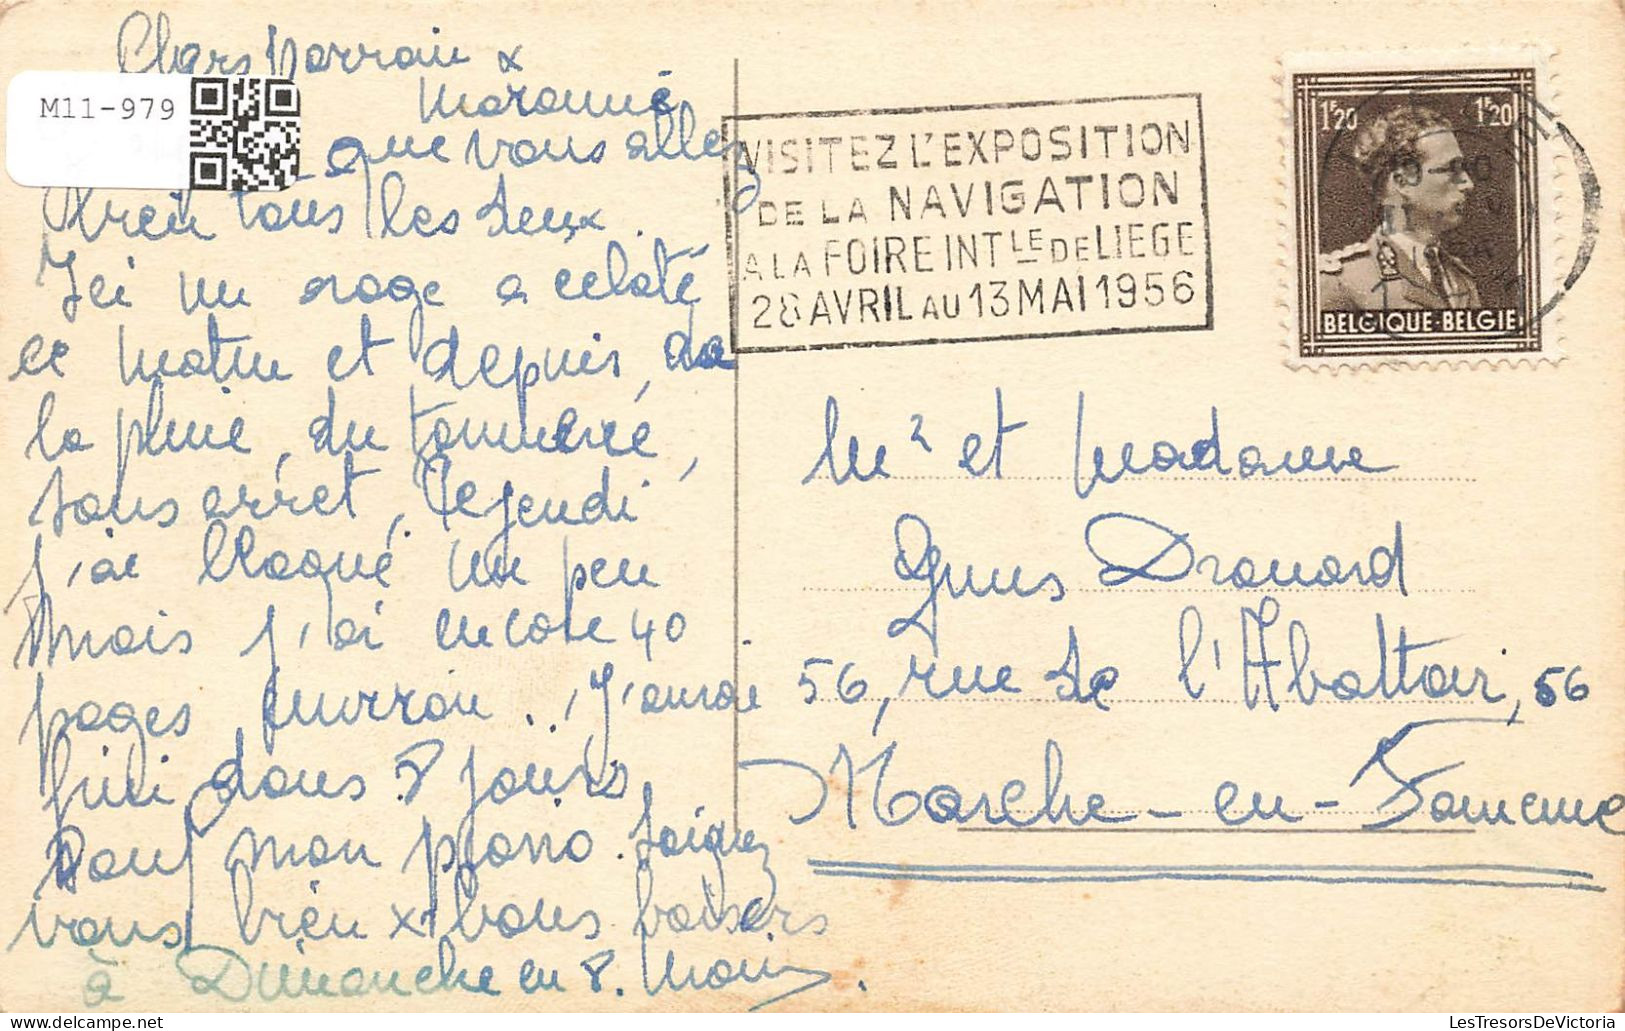 Chers Parrain &
Marainne
M11-979
que vous allez
bien tous les deux.
Ici un orage a eclaté
ce matin et depuis, de
la pluie, du tonnerre,
sans arret. Ce jeudi
j'ai bloqué un peu
mais j'ai encore 40
pages environ. J'aurai
fini dans 8 jours
sauf mon piano. Soignez
vous bien & bons baisers
à Dimanche en 8.
VISITEZ L'EXPOSITION
DE LA NAVIGATION
A LA FOIRE INTLE DE LIEGE
28 AVRIL AU 13 MAI 1956
1F20 1F20
BELGIQUE-BELGIE
Mr et Madame
Drouard
56, rue de l'Abattoir, 56
Marche-en-Famenne
LesTresorsDeVictoria.com